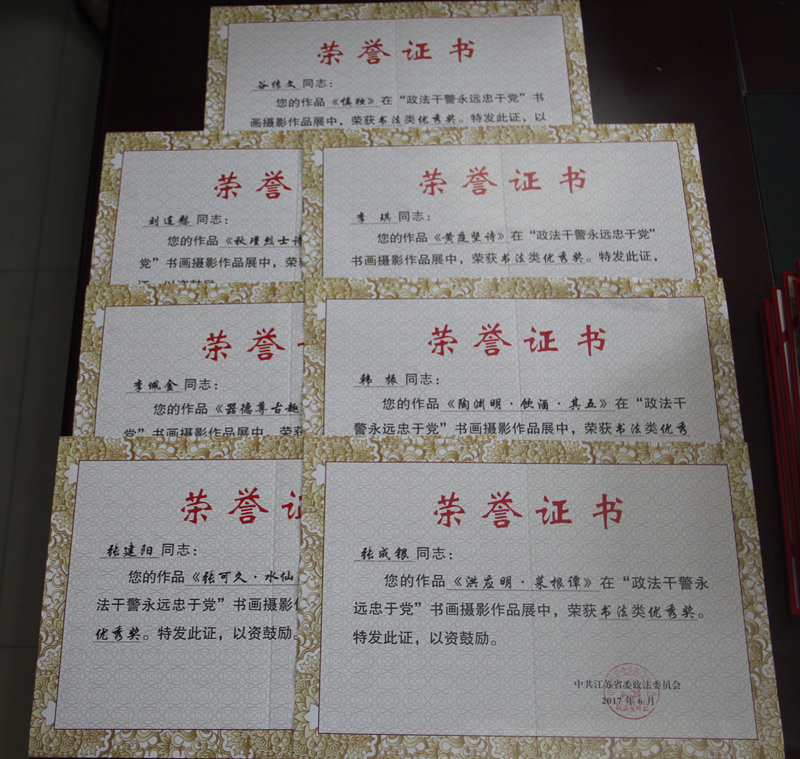 荣誉证书
谷传文同志：
您的作品《慎独》在“政法干警永远忠于党”书
画摄影作品展中，荣获书法类优秀奖。特发此证，以
荣誉
刘运慰同志：
您的作品《秋瑾烈士诗
党”书画摄影作品展中，荣
荣誉证书
李琪同志：
您的作品《黄庭坚诗》在“政法干警永远忠于党”
书画摄影作品展中，荣获书法类优秀奖。特发此证，
荣誉
李佩金同志：
您的作品《器德尊古趣
党”书画摄影作品展中，荣获
荣誉证书
韩振同志：
您的作品《陶渊明·饮酒·其五》在“政法干
警永远忠于党”书画摄影作品展中，荣获书法类优秀
荣誉
张建阳同志：
您的作品《张可久·水仙
法干警永远忠于党”书画摄影
优秀奖。特发此证，以资鼓励。
荣誉证书
张成银同志：
您的作品《洪应明·菜根谭》在“政法干警永
远忠于党”书画摄影作品展中，荣获书法类优秀奖。
特发此证，以资鼓励。
中共江苏省委政法委员会
2017年6月